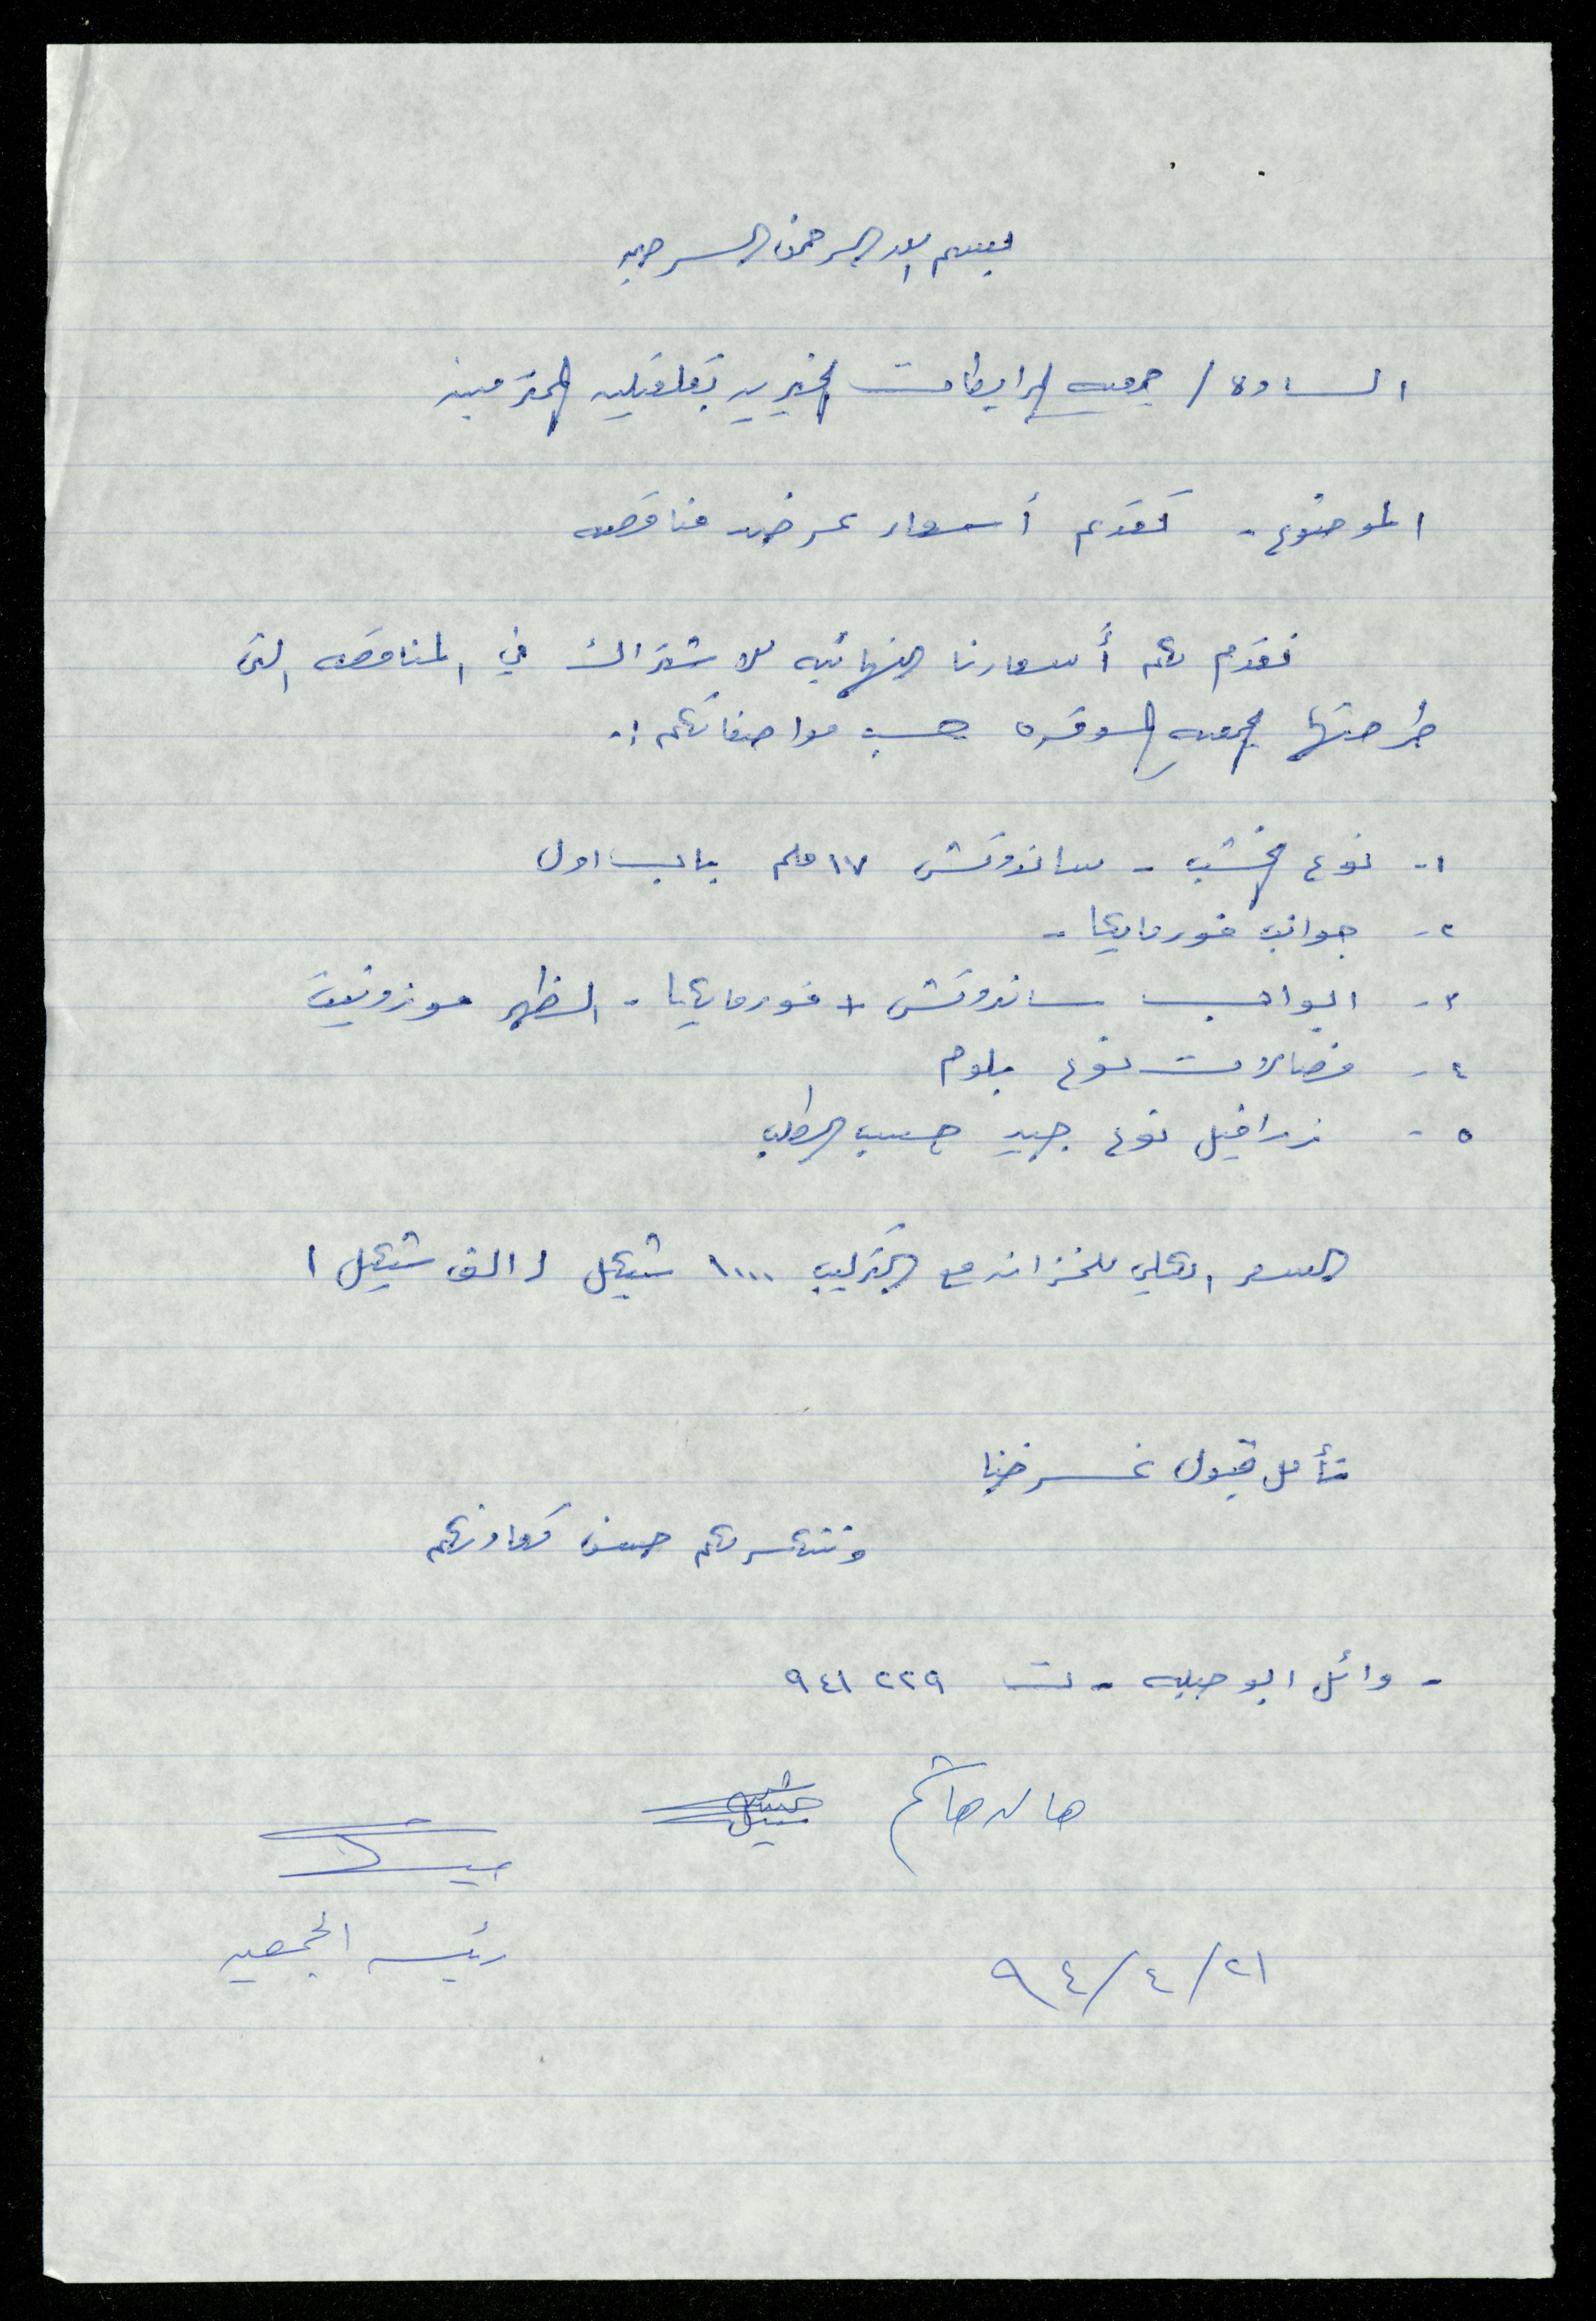 بسم الله الرحمن الرحيم
السادة / جمعيه المرابطات الخيريه بقلقيليه المحترمين
الموضوع - تقديم أسعار عرض مناقصه
نقدم لكم أسعارنا النهائيه للاشتراك في المناقصه التي
طرحتها الجمعيه الموقره حسب مواصفاتكم :-
١- نوع الخشب - ساندوتش ١٧ ملم باب اول
٢- جوانب فورمايكا -
٣- ابواب ساندوتش + فورمايكا - الظهر موزونيت
٤- فصالات نوع بلوم
٥- زرافيل نوع جيد حسب الطلب
السعر الكلي للخزانه مع التركيب ١٠٠٠ شيكل ( الف شيكل )
نأمل قبول عرضنا
ونشكر لكم حسن تعاونكم
- وائل ابو حبله - ت ٩٤١٢٢٩
رئيسه الجمعيه
٢١/٤/٩٤